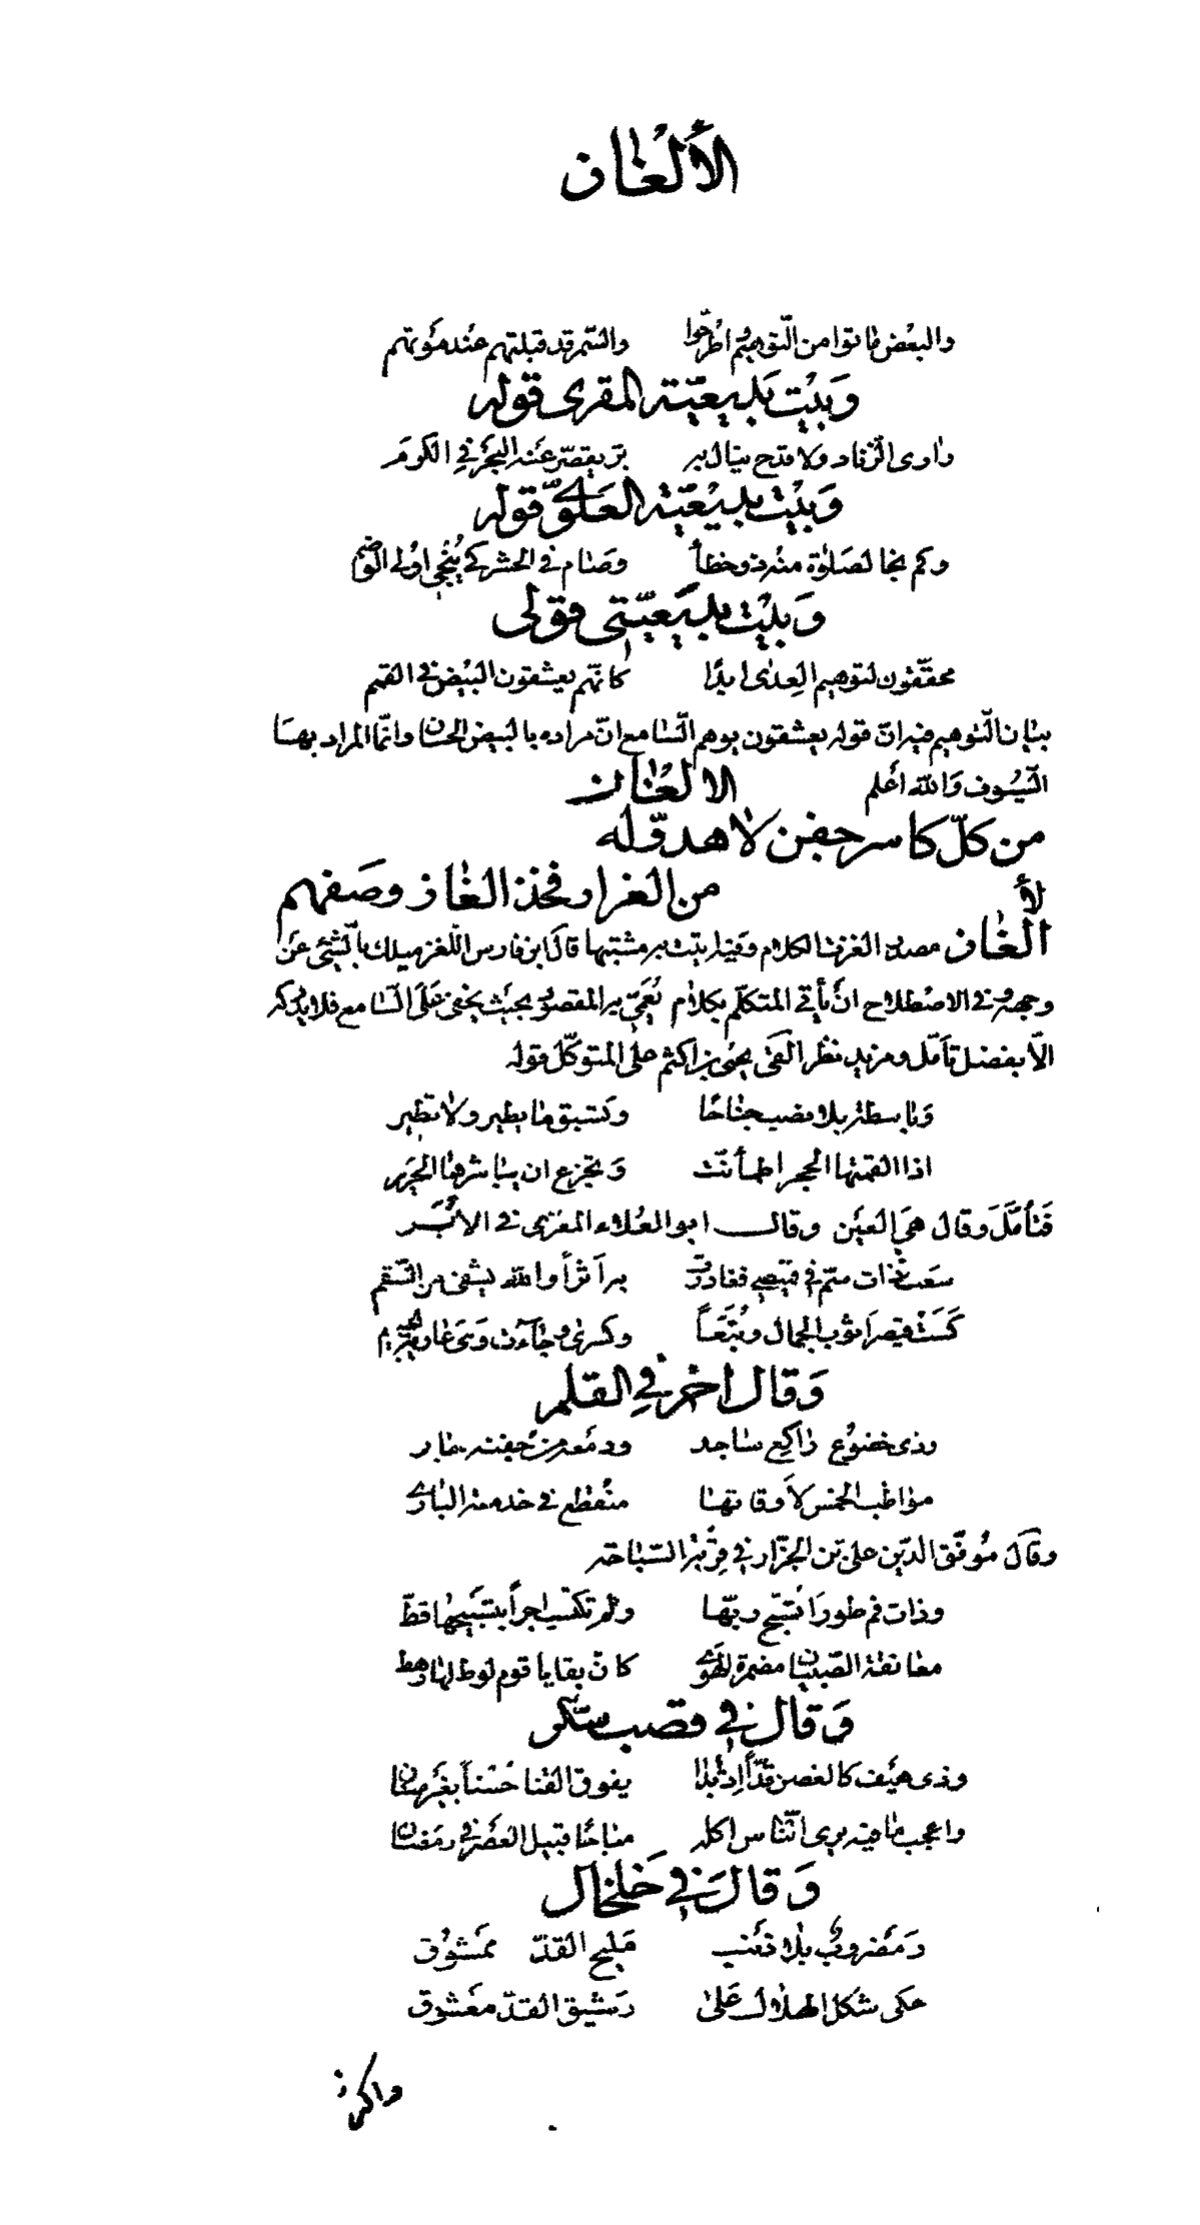 الألغاز
والبعض ماتوا من التوهيم اطرحوا والسمر قد قبلتهم عند موتهم
وبيت بديعية المقري قوله
وارى الزناد ولا قدح ينال به بر يقصر عنه البحر في الكرم
وبيت بديعية العلوي قوله
وكم نجا لصلاة منه ذو خطأ وصام في الحشر كي ينجي اولى
وبيت بديعيتي قولي
محققون لتوهيم العدى ابدا كانهم يعشقون البيض في القمم
بيان التوهيم فيه ان قوله يعشقون يوهم السامع ان مراده بالبيض الحسان وانما المراد بها
السيوف والله أعلم الالغاز
من كل كاسر جفن لا هدو له
من الغرار فخذ الغاز وصفهم
لأ
الغاز مصدر الغز في الكلام وفيه اتيت به مشتبها قال ابن فارس اللغز ميلك بالشئ عن
وجهه وفي الاصطلاح ان يأتي المتكلم بكلام يعمى به المقصود بحيث يخفى على السامع فلا يدركه
الا بفضل تأمل ومزيد نظر القى يحيى بن اكثم على المتوكل قوله
وباسطة بلا نصب جناحا وتسبق ما يطير ولا تطير
اذا القمتها الحجر اطمأنت وتجزع ان يباشرها الحرير
فتأمل وقال هي العين وقال ابو العلاء المعري في الابر
سعت ذات سم في قميصي فغادرت به أثرا والله يشفي من السقم
كست قيصرا ثوب الجمال وتبعا وكسرى وجاءت وهي عارية الجسم
وقال اخر في القلم
وذي خضوع راكع ساجد ودمعه من جفنه جار
مواظب الخمس لاوقاتها منقطع في خدمة الباري
وقال موفق الدين علي بن الجزار في قربة السباحة
وذات فم طورا تسبح ربها ولم تكتسب اجرا بتسبيحها قط
معانقة الصبيان مضمرة الهوى كان بقايا قوم لوط لها رهط
وقال في قصب سكر
وذي هيف كالغصن قدا اذ بدا يفوق القنا حسنا بغير سنان
واعجب ما فيه يرى الناس اكله مباحا قبيل العصر في رمضان
وقال في خلخال
ومضروب بلا ذنب مليح القد ممشوق
حكى شكل الهلال على رشيق القد معشوق
واكثر